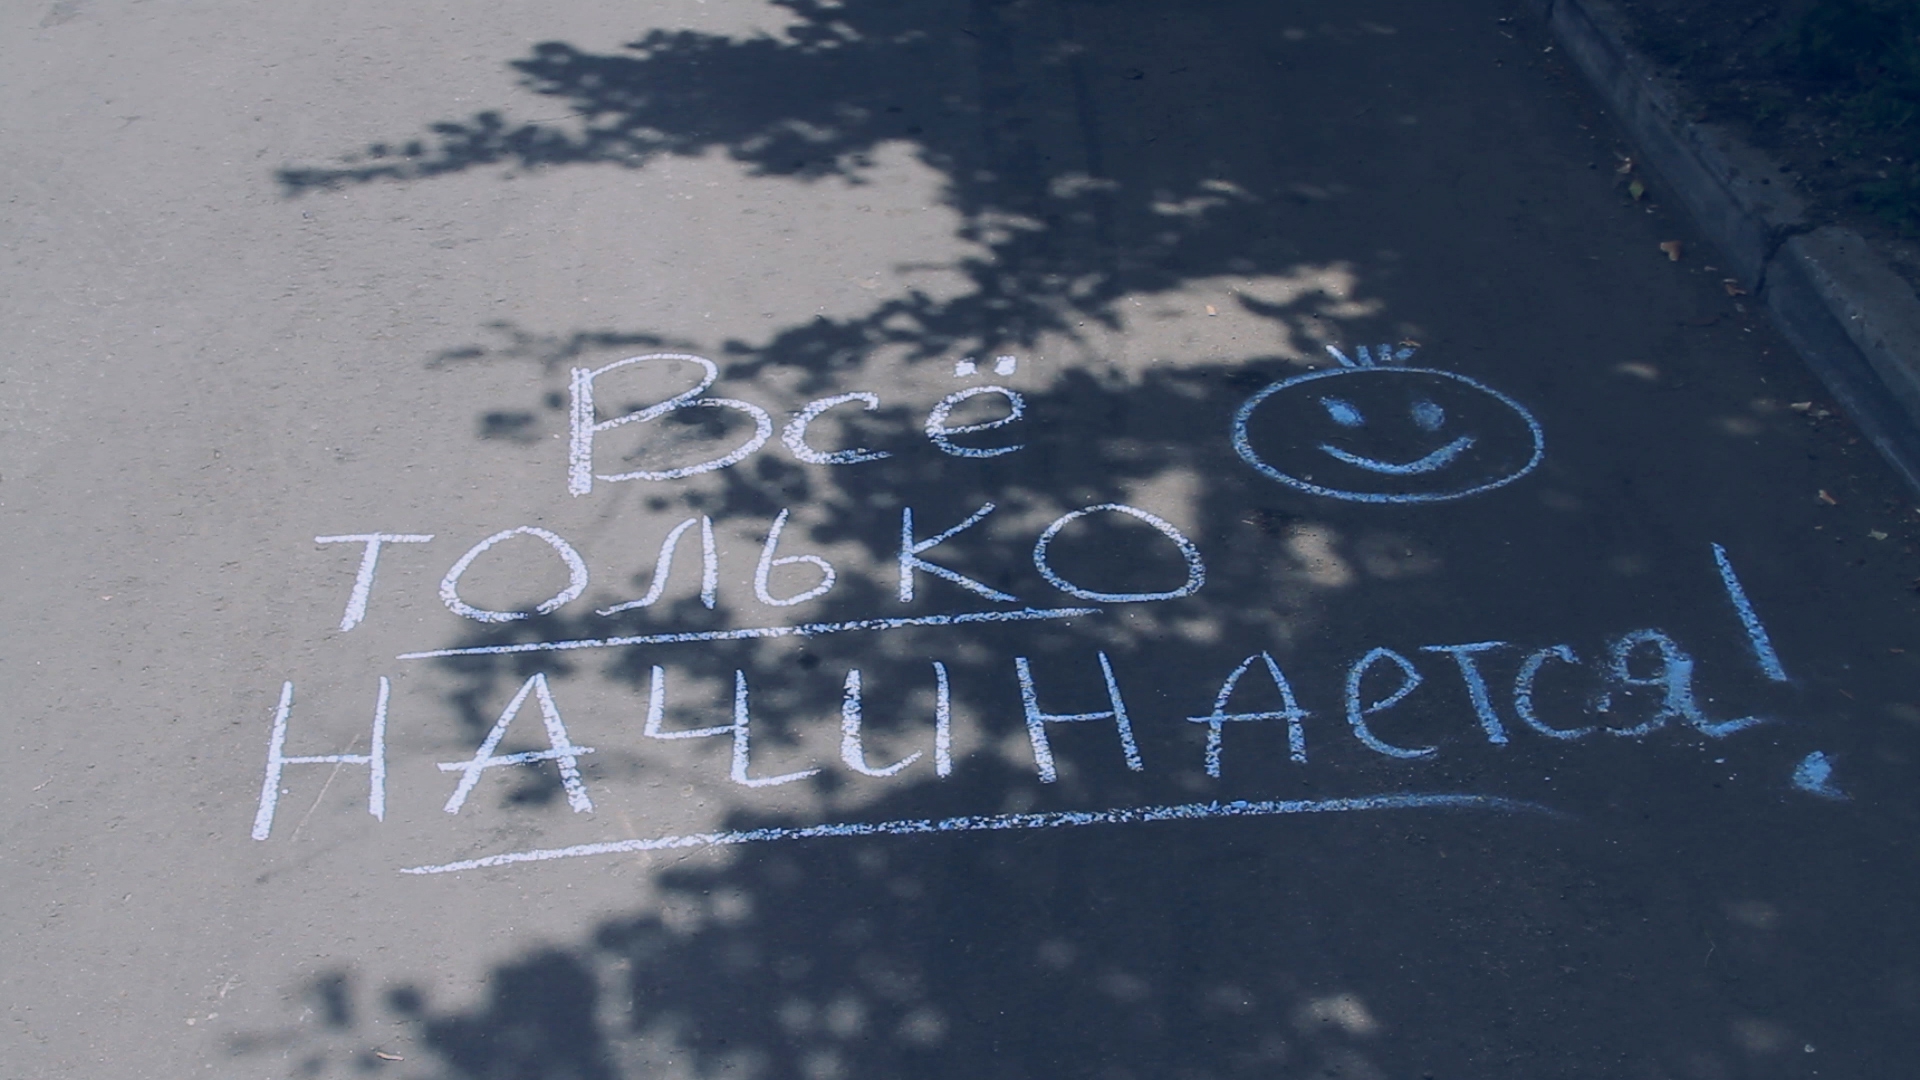 Всё
только
НАЧИНАется!